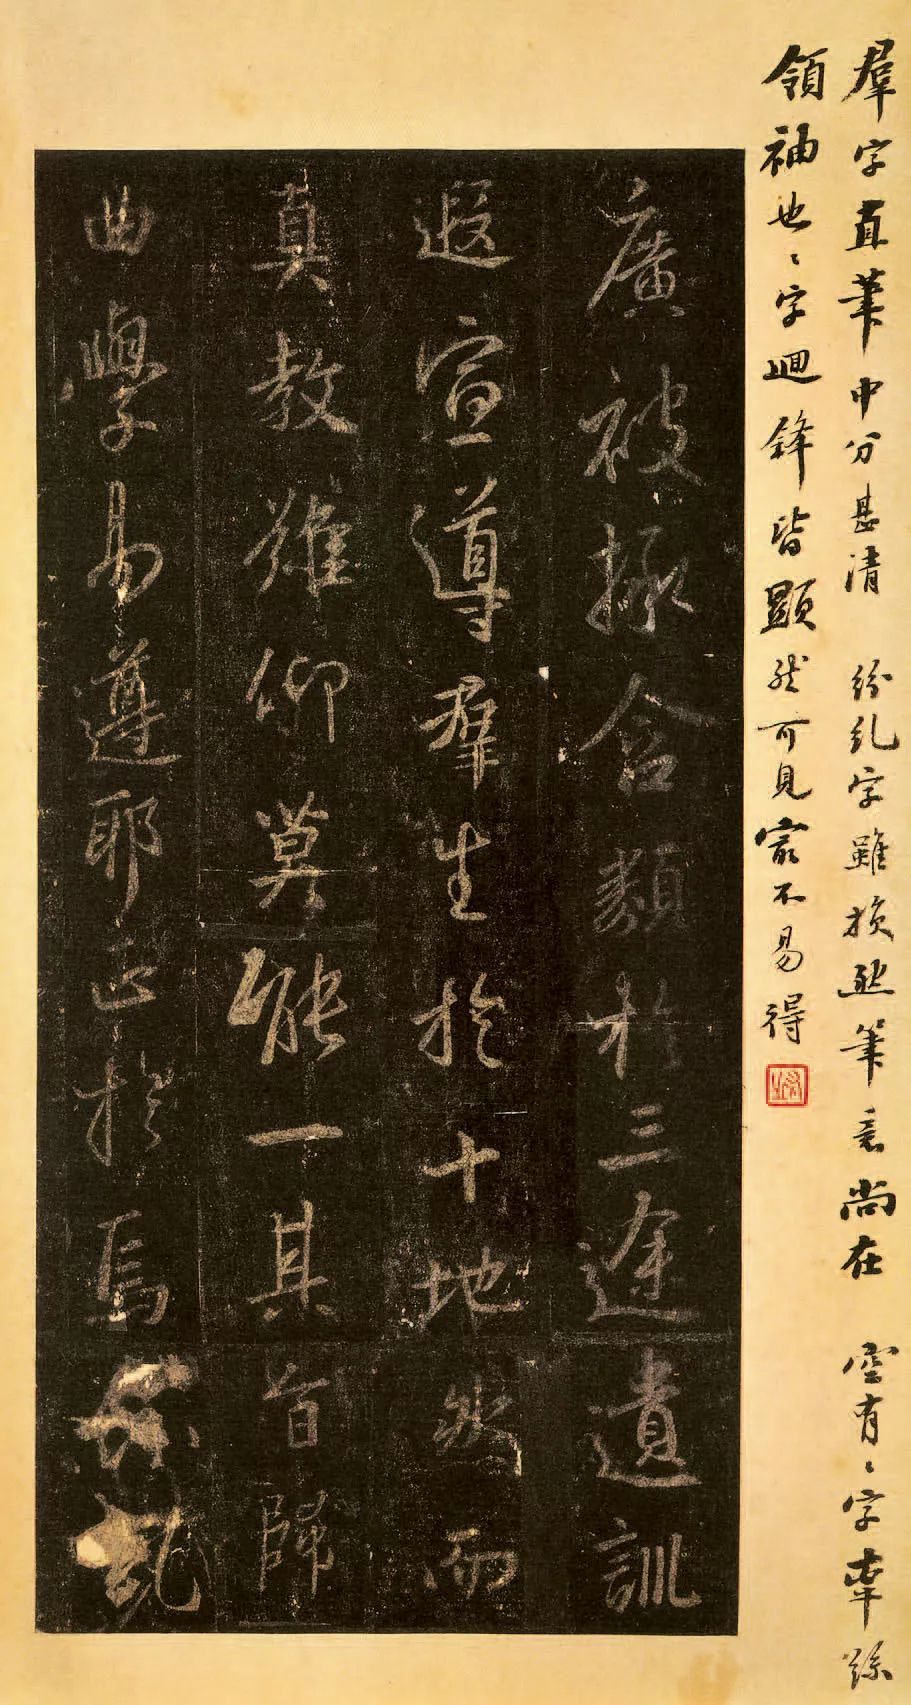 羣字直筆中分甚清 紛糺字雖損然筆意尚在 空有二字牽絲
領袖也二字迴鋒皆顯然可見最不易得
廣被拯含類於三途遺訓
遐宣導羣生於十地然而
真教難仰莫能一其旨歸
曲學易遵耶正於焉紛糺